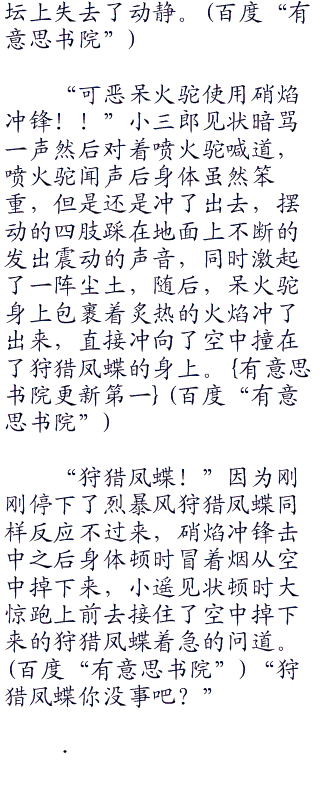 坛上失去了动静。(百度“有
意思书院”)
“可恶呆火驼使用硝焰
冲锋！！”小三郎见状暗骂
一声然后对着喷火驼喊道，
喷火驼闻声后身体虽然笨
重，但是还是冲了出去，摆
动的四肢踩在地面上不断的
发出震动的声音，同时激起
了一阵尘土，随后，呆火驼
身上包裹着炙热的火焰冲了
出来，直接冲向了空中撞在
了狩猎凤蝶的身上。{有意思
书院更新第一}(百度“有意
思书院”)
“狩猎凤蝶！”因为刚
刚停下了烈暴风狩猎凤蝶同
样反应不过来，硝焰冲锋击
中之后身体顿时冒着烟从空
中掉下来，小遥见状顿时大
惊跑上前去接住了空中掉下
来的狩猎凤蝶着急的问道。
(百度“有意思书院”)“狩
猎凤蝶你没事吧？”
.